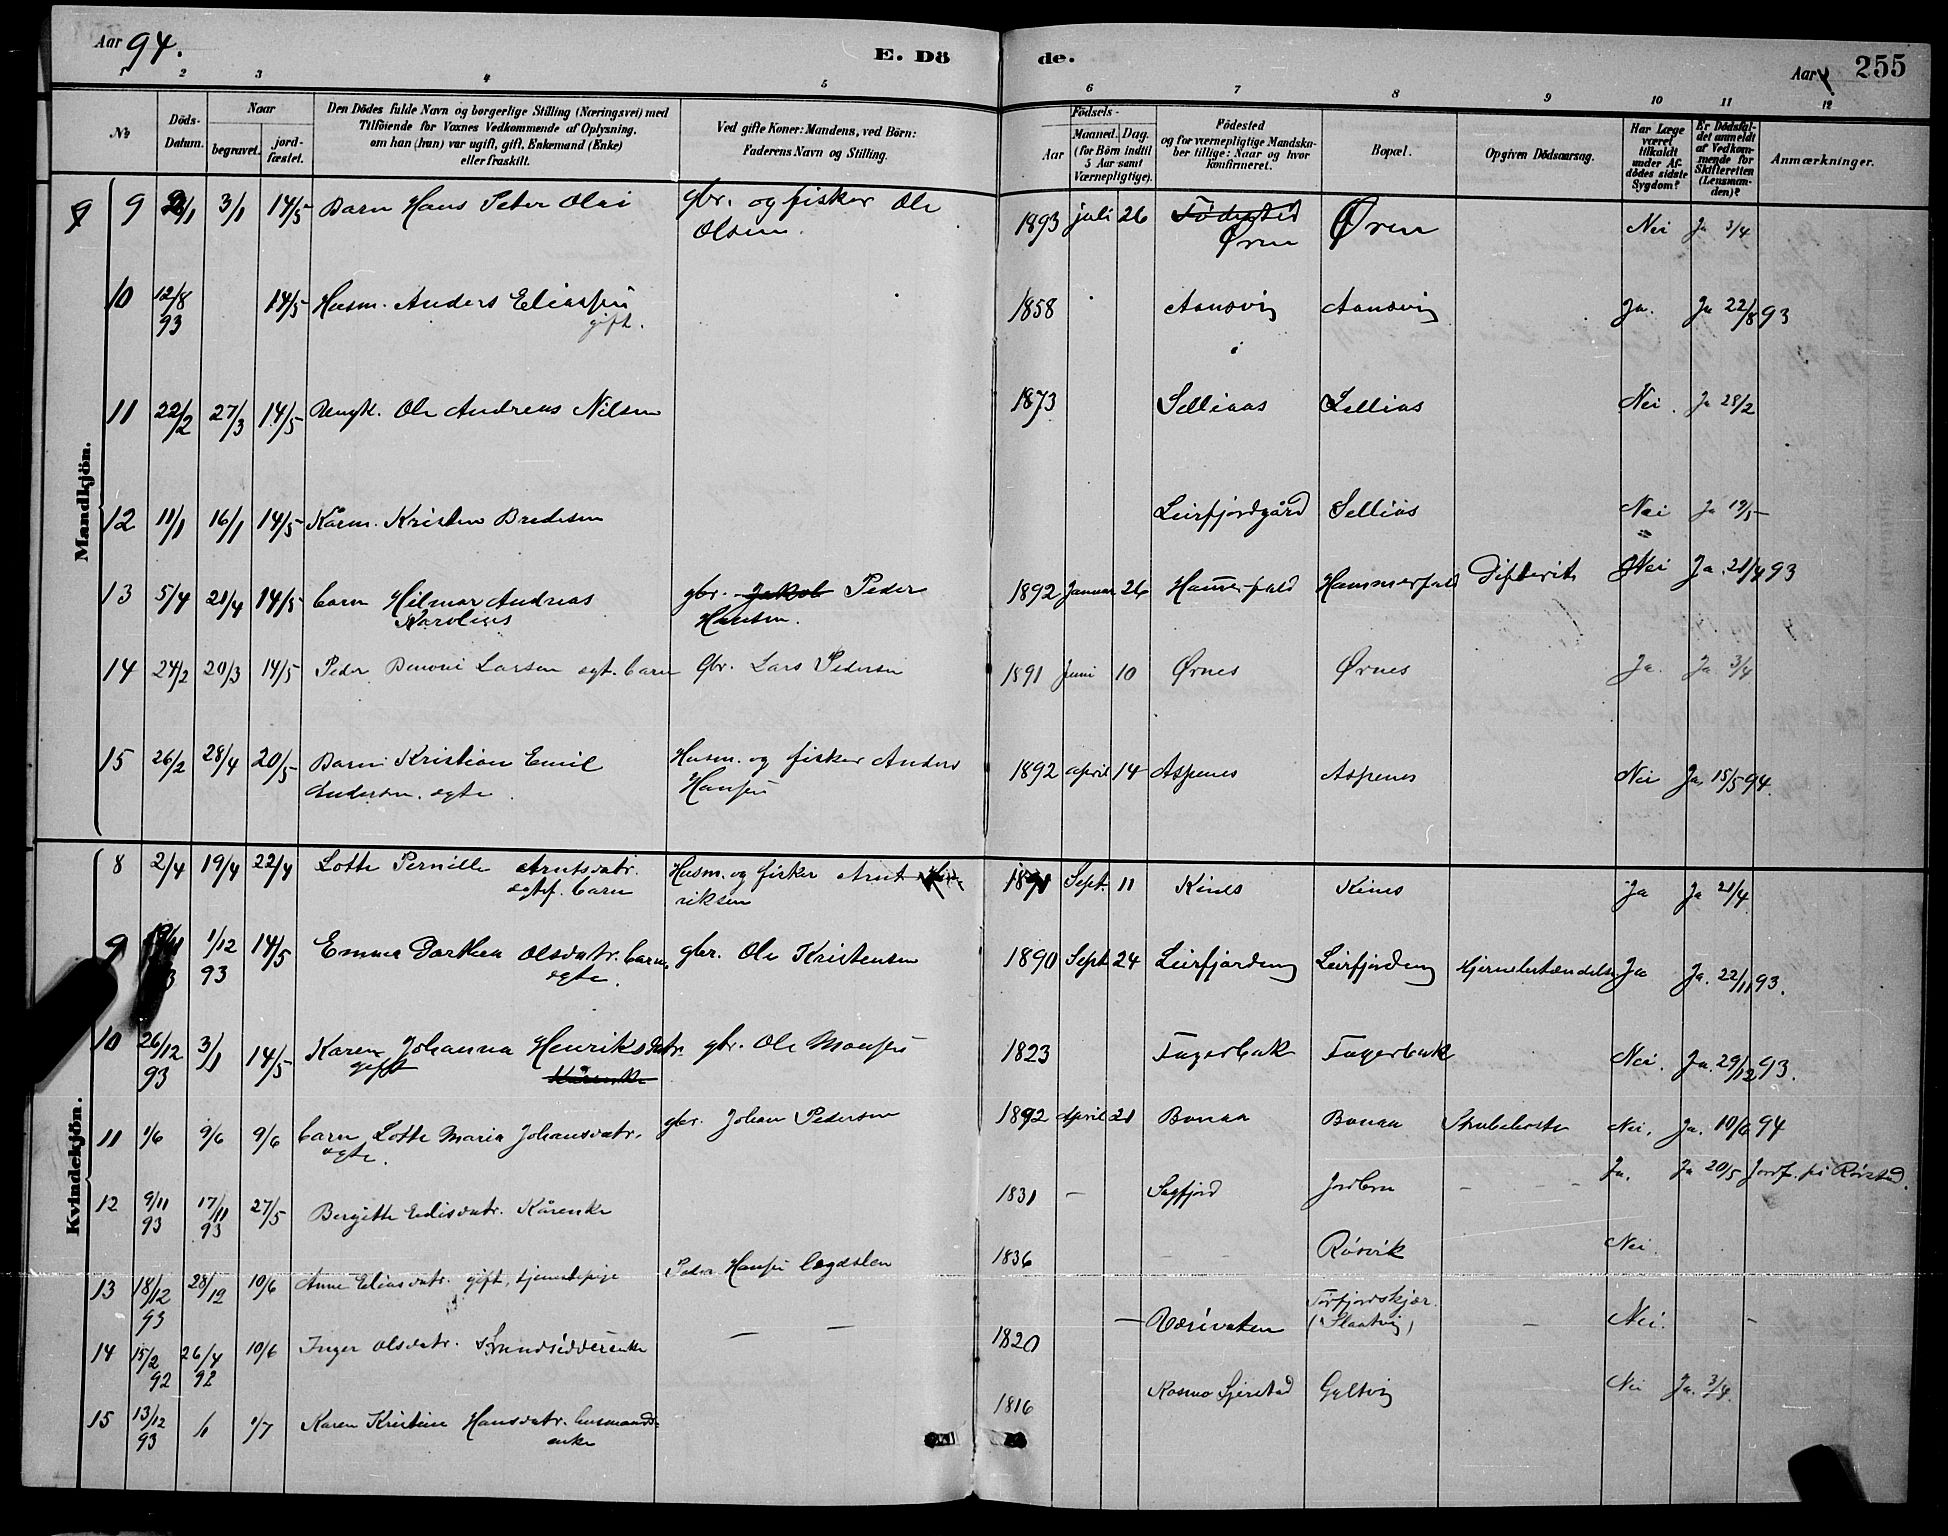 Aar 94.
E. Dö
de.
Aar
255
1 2 3 4 5 6 7 8 9 10 11 12
No
Döds-
Datum.
Naar
begravet.
jord-
fæstet.
Den Dödes fulde Navn og borgerlige Stilling (Næringsvei) med
Tilföiende for Voxnes Vedkommende af Oplysning,
om han (hun) var ugift, gift, Enkemand (Enke)
eller fraskilt.
Ved gifte Koner: Mandens, ved Börn:
Faderens Navn og Stilling.
Födsels-
Aar
Maaned. Dag.
(for Börn indtil
5 Aar samt
Værnepligtige).
Födested
og for værnepligtige Mandska-
ber tillige: Naar og hvor
konfirmeret.
Bopæl.
Opgiven Dödsaarsag.
Har Læge
været
tilkaldt
under Af-
dödes sidste
Sygdom?
Er Dödsfal-
det anmeldt
af Vedkom-
mende for
Skifteretten
(Lensman-
den)?
Anmærkninger.
Mandkjön.
9 3/1 14/5 Barn Hans Peter Olai gbr. og fisker Ole
Olsen.
1893 juli 26 Fødested
Øren Øren Nei Ja 3/4
10 12/8
93 14/5 Husm. Anders Eliassen
gift.
1858 Aansvig Aansvig Ja. Ja 22/8 93
11 22/2 27/3 14/5 Ungk. Ole Andreas Nilsen 1873 Selliaas Sellias Nei. Ja 28/2
12 11/1 16/1 14/5 Kårm. Kristen Bredesen Leirfjordgård Sellias Nei Ja 19/5
13 5/4 21/4 14/5 barn Hilmar Andreas
Karolius
gbr. Jakob Peder
Hansen.
1892 Januar 26 Hammerfald Hammerfald Difterit Nei Ja. 21/4 93
14 24/2 20/3 14/5 Peder Benoni Larsen ægt. barn Gbr. Lars Pedersen 1891 Juni 10 Ørnes Ørnes Ja. Ja 3/4
15 26/2 28/4 20/5 Barn Kristian Emil
Andersen. ægte
Husm. og fisker Anders
Hansen
1892 april 14 Aspenes Aspenes Nei Ja. 15/5 94.
Kvindekjön.
8 2/4 19/4 22/4 Lotte Pernille Arntsdatr.
barn
Husm. og fisker Arnt
riksen
Sept. 11 Kines Kines Ja Ja 21/4
9 1/12
93 14/5 Emma Dorthea Olsdatr. barn,
ægte.
gbr. Ole Kristensen 1890 Sept 24 Leirfjorden Leirfjorden Hjernebetændelse Ja Ja. 22/11 93.
10 26/12
93 3/1 14/5 Karen Johanna Henriksdatr.
gift Kårenke
gbr. Ole Monsen 1823 Fagerbak Fagerbak Nei. Ja. 29/12 93.
11 1/6 9/6 9/6 barn Lotte Maria Johansdatr.
ægte.
gbr. Johan Pedersen 1892 April 21 Bonaa Bonaa Strubehoste Nei. Ja. 10/6 94
12 9/11
93 17/11
93 27/5 Bergitte Kårenke 1831 Sagfjord Jordbru Ja. Ja 20/5 Jordf. på Rørstad.
13 18/12
93 28/12 10/6 Anne Eliasdatr. gift, tjenestepige Peder Hansen 1836 Rösvik Nei.
14 15/2
92 26/4
92 10/6 Inger Olsdatr. Strandsidderenke 1820 Nei.
15 13/12
93 1/7 Karen Kristine Hansdatr. husmands-
enke
1816 Gyltvig Nei Ja. 3/4